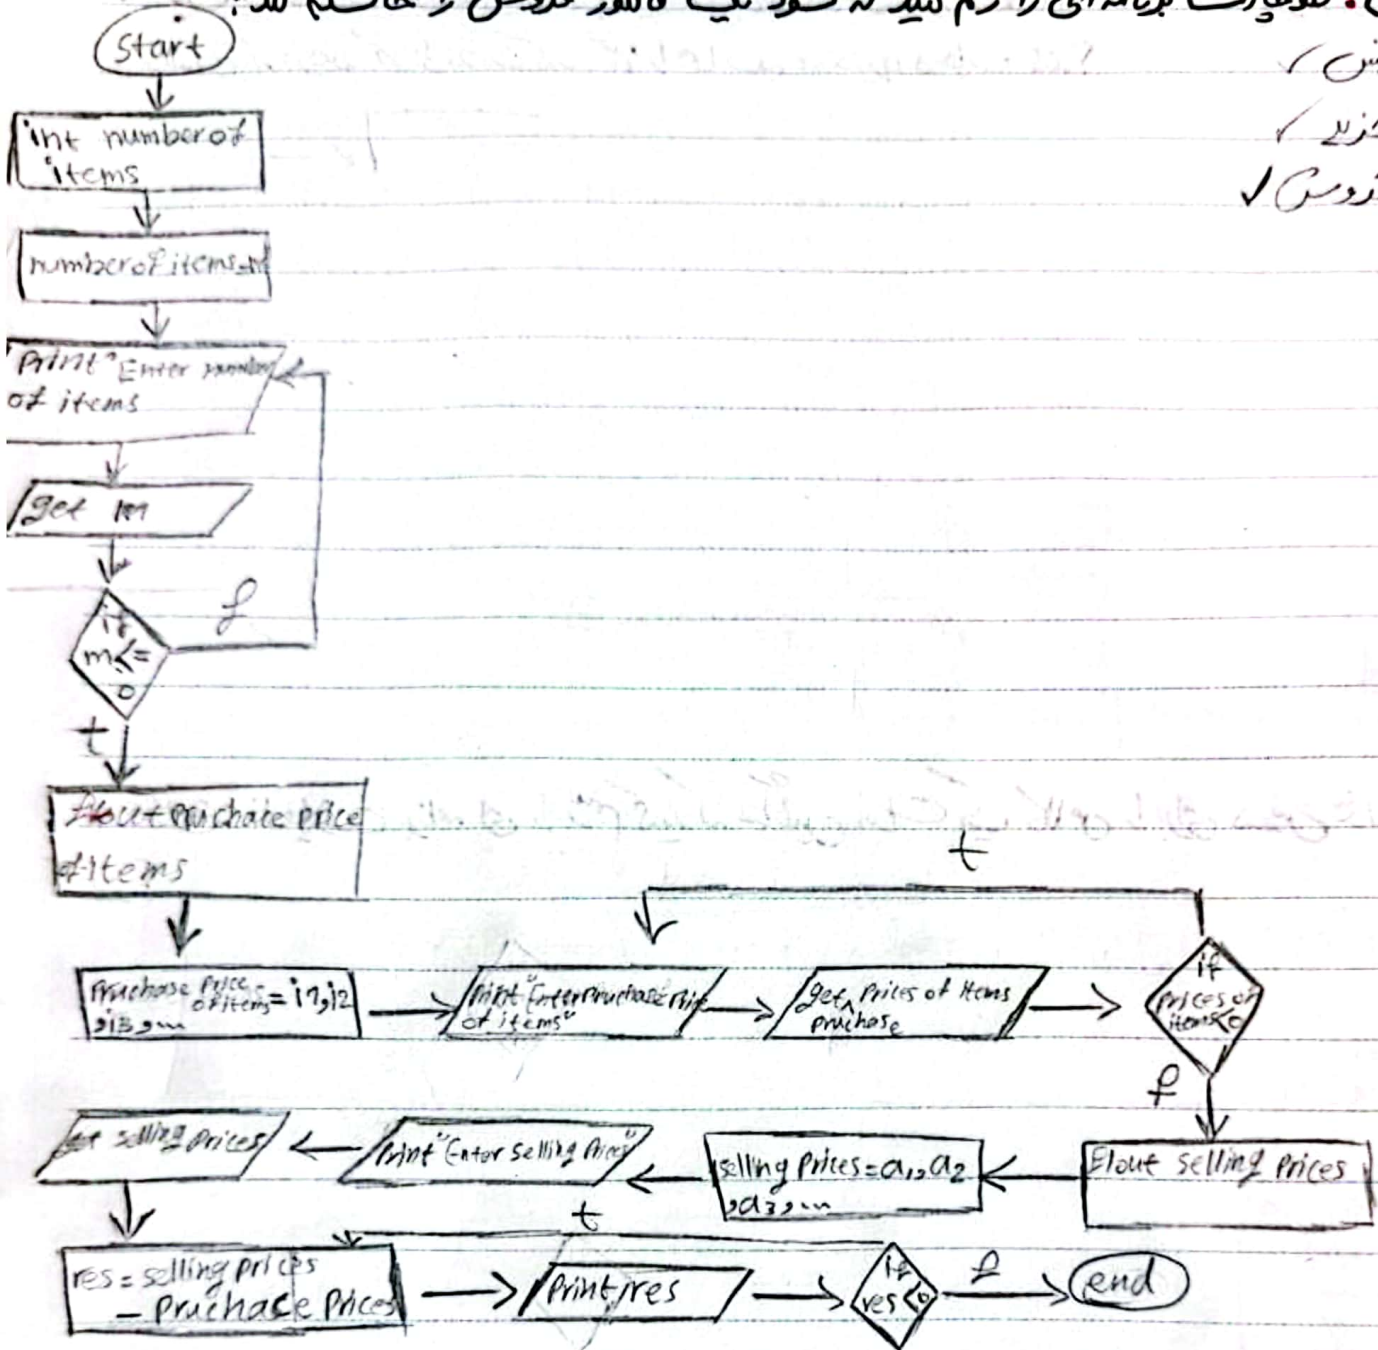 را رسم کنید که سود یک فاکتور فروش را حساب کند.
start
int number of
items
number of items=m
Print "Enter number
of items
get m
if
m<=
0
f
t
float pruchace price
of items
t
Pruchase Price
of items = i1,i2
,i3,...
Print "Enter pruchase Price
of items"
get Prices of items
pruchase
if
prices of
items<0
f
Flout selling Prices
selling Prices = a1,a2
,a3,...
Print "Enter selling Prices"
get selling Prices
res = selling prices
- pruchace Prices
Print res
t
if
res<0
f
end